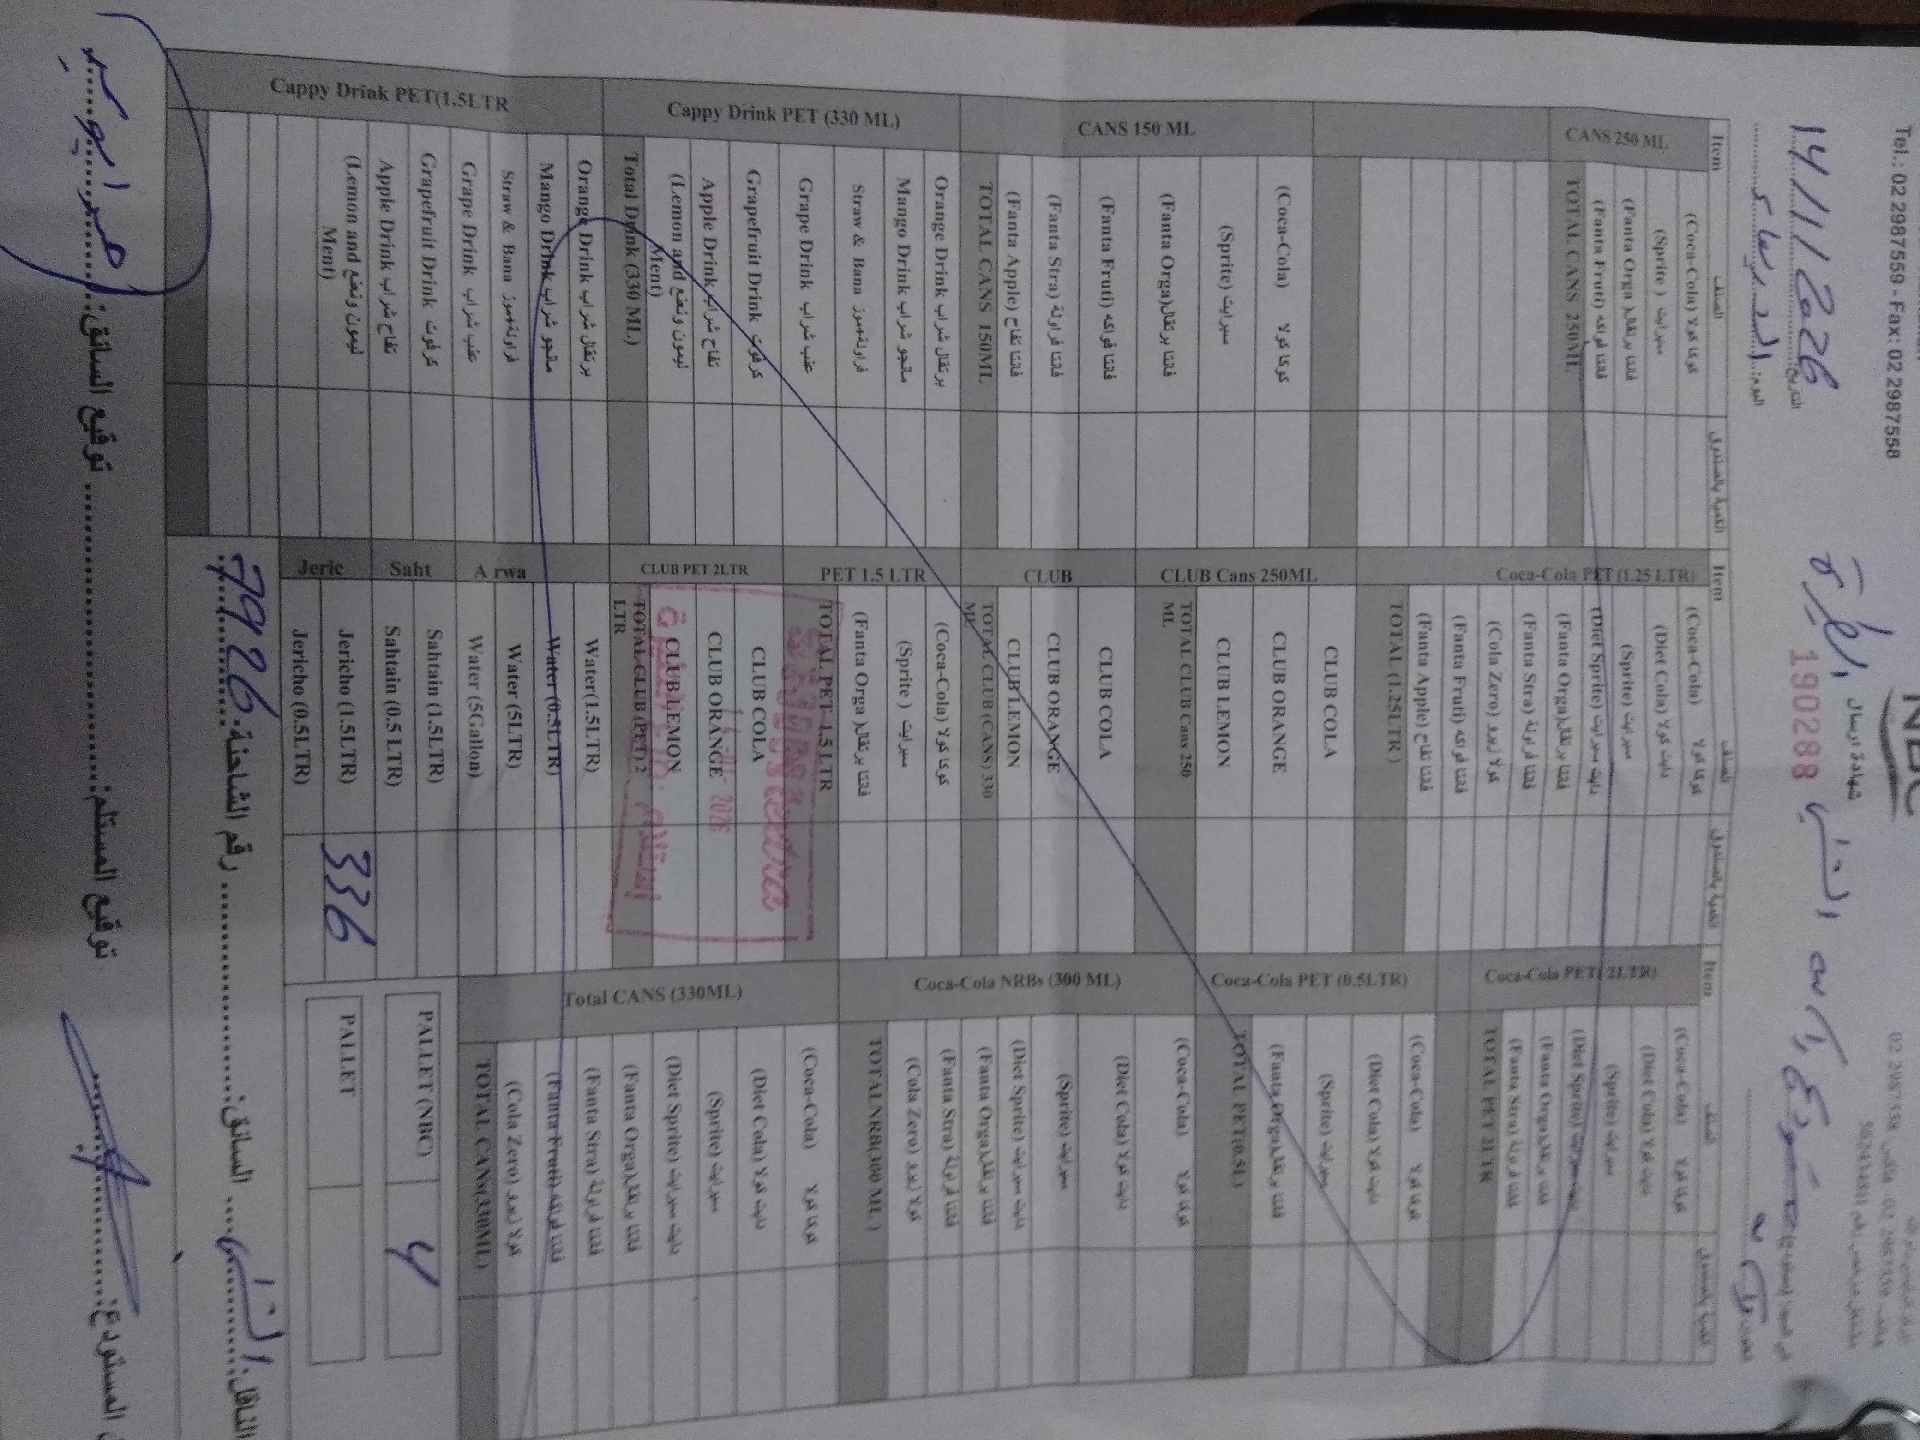 Tel.: 02 2987559 - Fax: 02 2987558
NBC
شهادة ارسال
190288
التاريخ: 14/1/2026
اليوم:
Item الصنف الكمية بالصندوق Item الصنف الكمية بالصندوق Item الصنف الكمية بالصندوق
CANS 250 ML
(Coca-Cola) كوكا كولا
(Sprite) سبرايت
(Fanta Orga) فنتا برتقال
(Fanta Fruti) فنتا فواكه
TOTAL CANS 250ML
CANS 150 ML
(Coca-Cola) كوكا كولا
(Sprite) سبرايت
(Fanta Orga) فنتا برتقال
(Fanta Fruti) فنتا فواكه
(Fanta Stra) فنتا فراولة
(Fanta Apple) فنتا تفاح
TOTAL CANS 150ML
Cappy Drink PET (330 ML)
Orange Drink برتقال شراب
Mango Drink مانجو شراب
Straw & Bana فراولة+موز
Grape Drink عنب شراب
Grapefruit Drink كرفوت
Apple Drink تفاح شراب
(Lemon and Ment) ليمون ونعنع
Total Drink (330 ML)
Cappy Drink PET(1.5LTR
Orange Drink برتقال شراب
Mango Drink مانجو شراب
Straw & Bana فراولة+موز
Grape Drink عنب شراب
Grapefruit Drink كرفوت
Apple Drink تفاح شراب
(Lemon and Ment) ليمون ونعنع
Coca-Cola PET (1.25 LTR)
(Coca-Cola) كوكا كولا
(Diet Cola) دايت كولا
(Sprite) سبرايت
(Diet Sprite) دايت سبرايت
(Fanta Orga) فنتا برتقال
(Fanta Stra) فنتا فراولة
(Cola Zero) كولا زيرو
(Fanta Fruti) فنتا فواكه
(Fanta Apple) فنتا تفاح
TOTAL (1.25LTR)
CLUB Cans 250ML
CLUB COLA
CLUB ORANGE
CLUB LEMON
TOTAL CLUB Cans 250 ML
CLUB
CLUB COLA
CLUB ORANGE
CLUB LEMON
TOTAL CLUB (CANS) 330 ML
PET 1.5 LTR
(Coca-Cola) كوكا كولا
(Sprite) سبرايت
(Fanta Orga) فنتا برتقال
TOTAL PET 1.5 LTR
CLUB PET 2LTR
CLUB COLA
CLUB ORANGE
CLUB LEMON
TOTAL CLUB (PET) 2 LTR
2026
A rwa
Water(1.5LTR)
Water (0.5LTR)
Water (5LTR)
Water (5Gallon)
Saht
Sahtain (1.5LTR)
Sahtain (0.5 LTR)
Jeric
Jericho (1.5LTR) 336
Jericho (0.5LTR)
Coca-Cola PET( 2LTR)
(Coca-Cola) كوكا كولا
(Diet Cola) دايت كولا
(Sprite) سبرايت
(Diet Sprite) دايت سبرايت
(Fanta Orga) فنتا برتقال
(Fanta Stra) فنتا فراولة
TOTAL PET 2LTR
Coca-Cola PET (0.5LTR)
(Coca-Cola) كوكا كولا
(Diet Cola) دايت كولا
(Sprite) سبرايت
(Fanta Orga) فنتا برتقال
TOTAL PET(0.5L)
Coca-Cola NRBs (300 ML)
(Coca-Cola) كوكا كولا
(Diet Cola) دايت كولا
(Sprite) سبرايت
(Diet Sprite) دايت سبرايت
(Fanta Orga) فنتا برتقال
(Fanta Stra) فنتا فراولة
(Cola Zero) كولا زيرو
TOTALNRB(300 ML )
Total CANS (330ML)
(Coca-Cola) كوكا كولا
(Diet Cola) دايت كولا
(Sprite) سبرايت
(Diet Sprite) دايت سبرايت
(Fanta Orga) فنتا برتقال
(Fanta Stra) فنتا فراولة
(Fanta Fruti) فنتا فواكه
(Cola Zero) كولا زيرو
TOTAL CANs(330ML)
PALLET (NBC) 4
PALLET
الناقل: السائق: رقم الشاحنة: 7926
المستودع: توقيع المستلم: توقيع السائق: